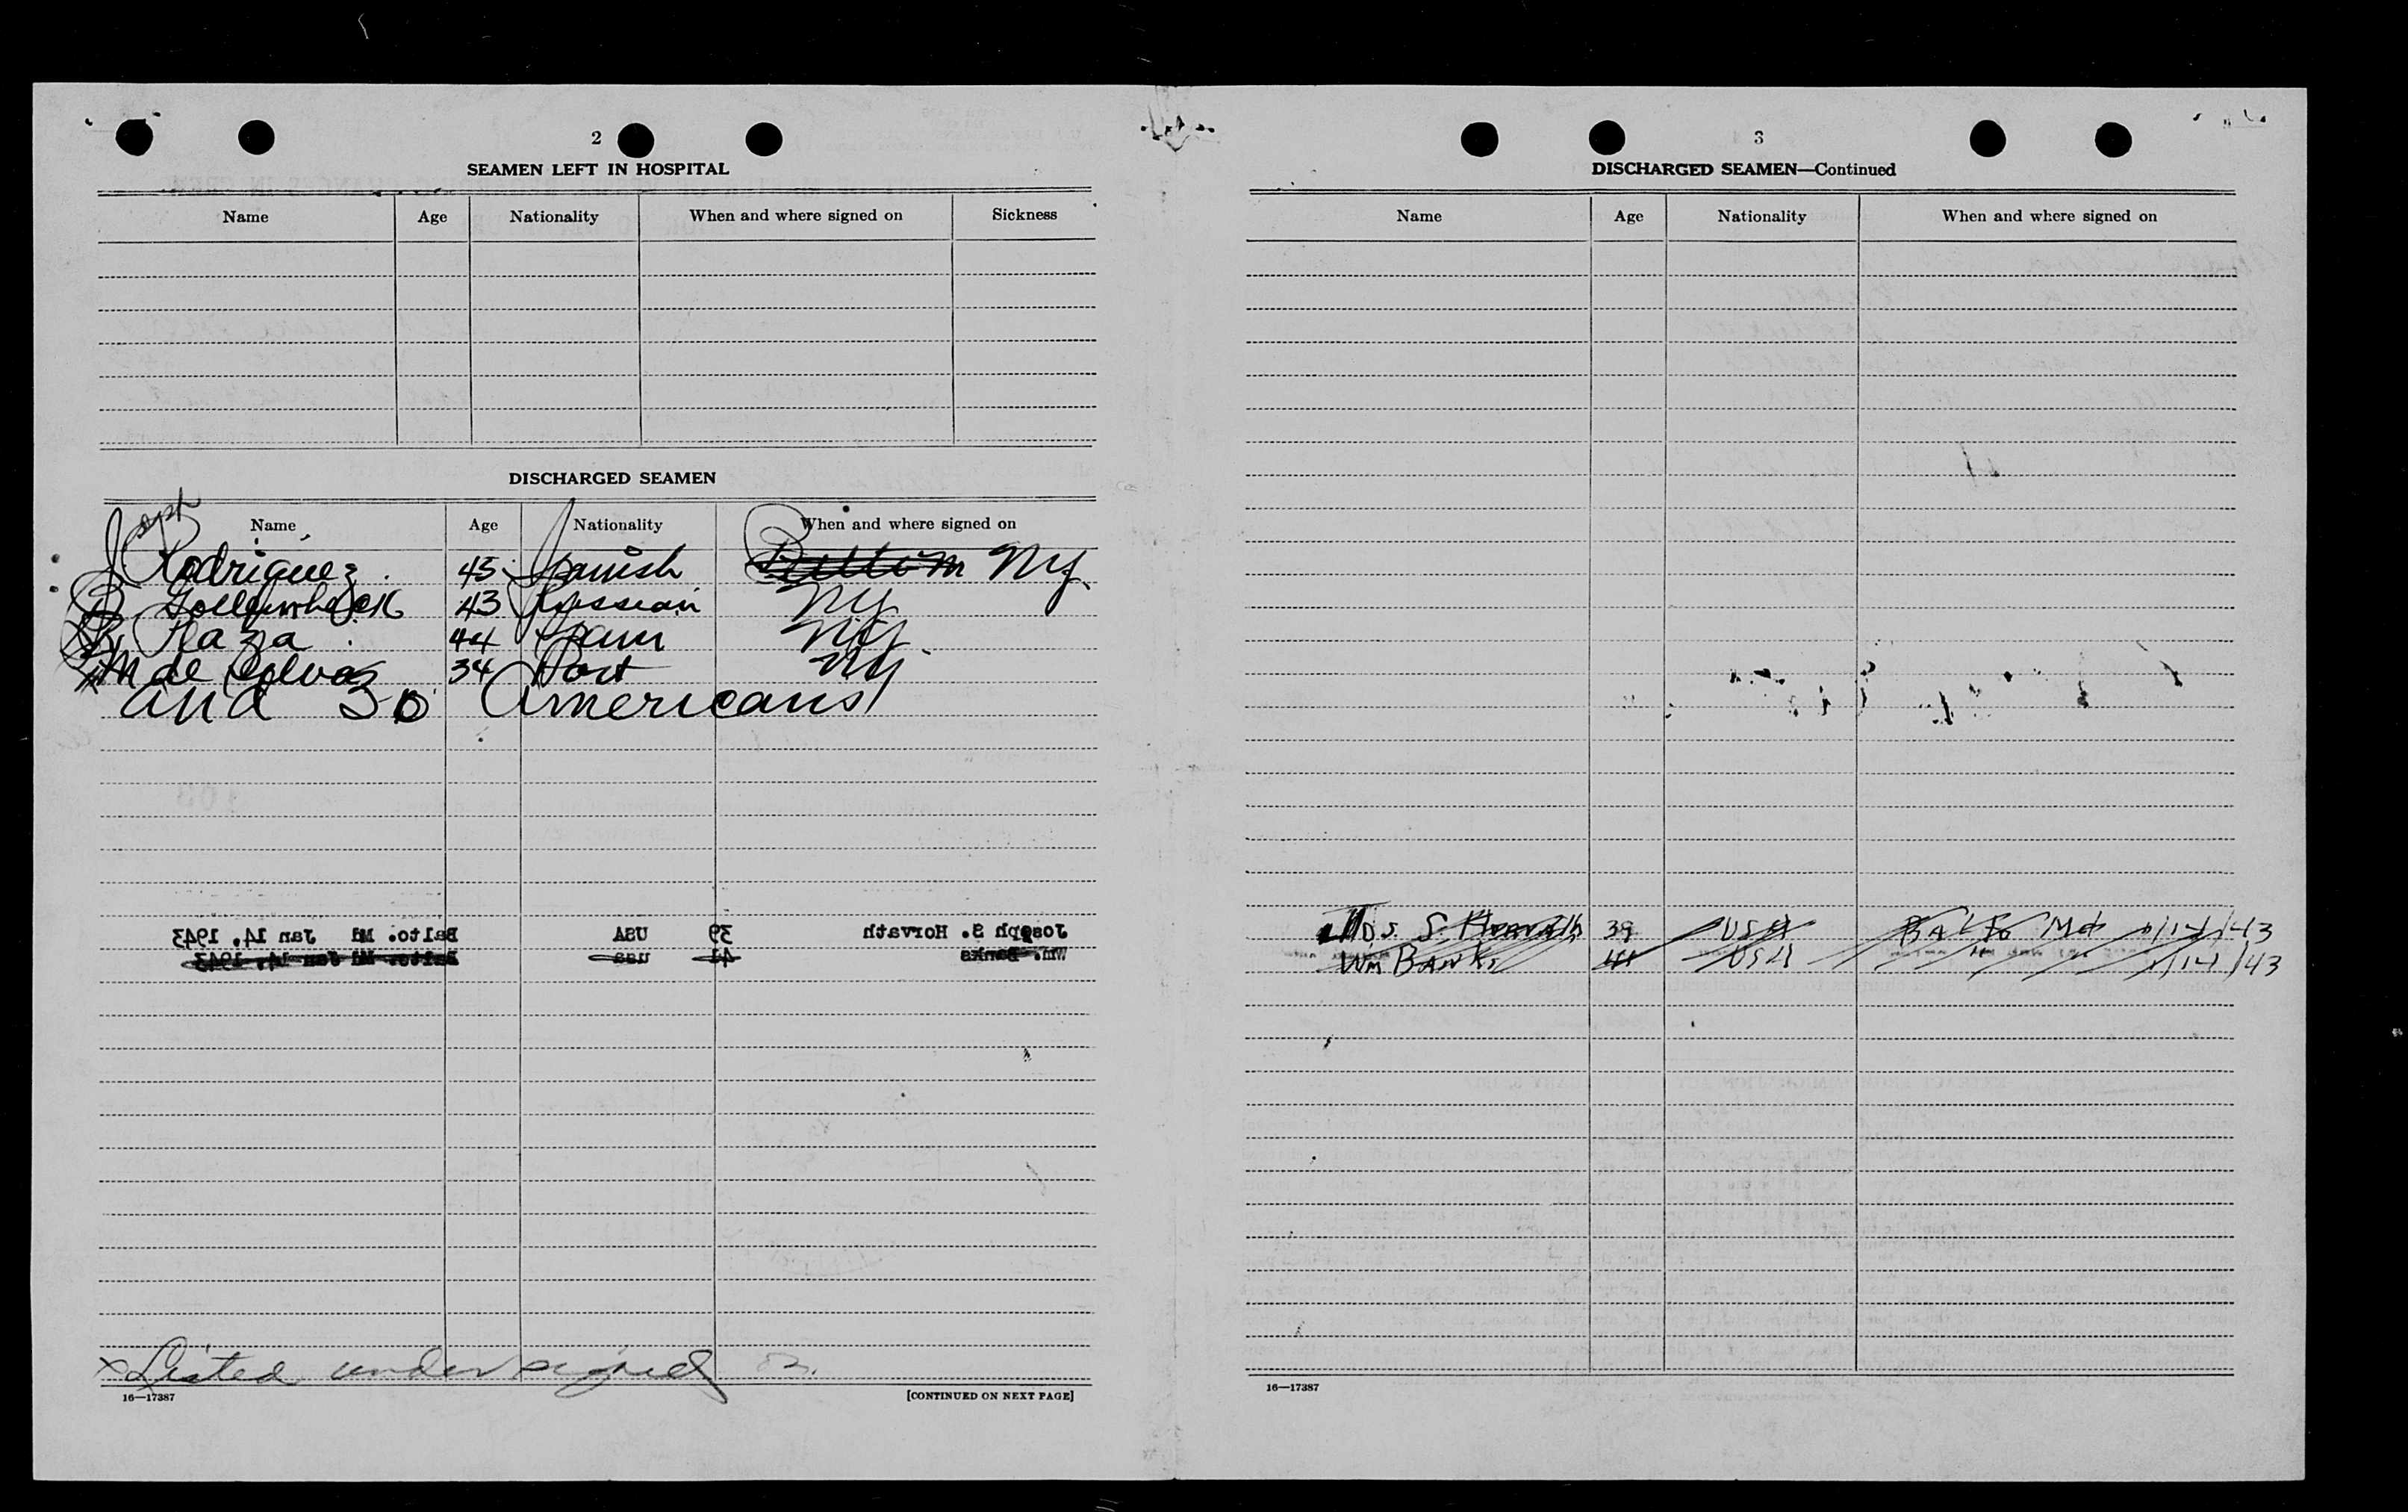 2
SEAMEN LEFT IN HOSPITAL
Name Age Nationality When and where signed on Sickness
DISCHARGED SEAMEN
Name Age Nationality When and where signed on
Joseph Rodriguez 45 Spanish NY
43 Russian NY
Plaza 44 Spain NY
M de 34 Port NY
and 30 Americans
Joseph S. Horvath 39 USA Balto. Md Jan 14, 1943
Wm. Banks 44 usa Balto. Md Jan 14, 1943
x Listed under signed on.
16—17387 [CONTINUED ON NEXT PAGE]
3
DISCHARGED SEAMEN—Continued
Name Age Nationality When and where signed on
Jos. S. Horvath 39 USA BALTO Md 1/14/43
Wm BANKS 44 USA " " 1/14/43
16—17387